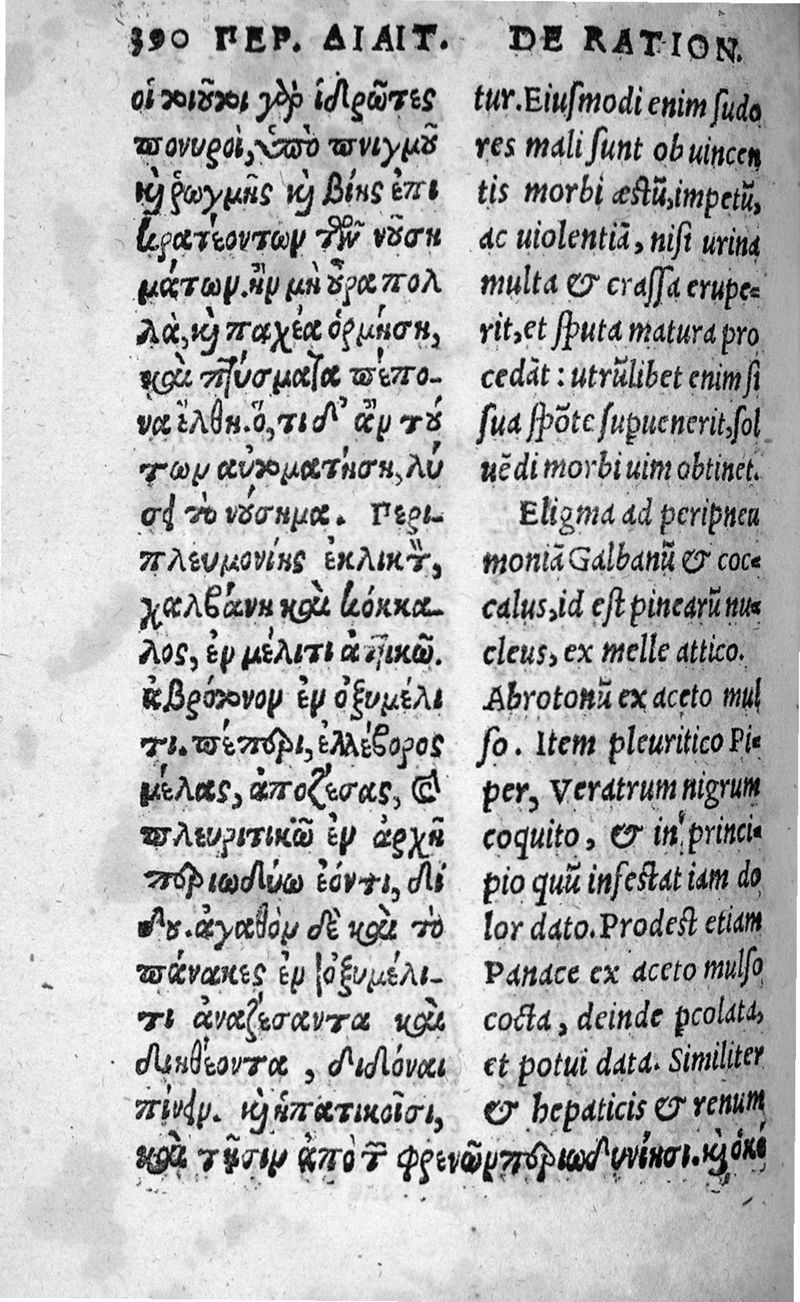 390 ΠΕΡ. ΔΙΑΙΤ. DE RATION.
οἱ τοιοῦτοι γὰρ ἱδρῶτες
πονηροὶ, ὑπὸ πνιγμοῦ
καὶ ῥωγμῆς καὶ βίης ἐπι
κρατέοντων τῶν νοση
μάτων. ἢν μὴ οὖρα πολ
λὰ, καὶ παχέα ὁρμήσῃ,
καὶ πτύσματα πέπο-
να ἔλθῃ. ὅ, τι δ' ἂν του
των αὐτοματήσῃ, λύ
σει τὸ νούσημα. Περι-
πλευμονίης ἐκλικτὸν,
χαλβάνη καὶ κόκκα-
λος, ἐν μέλιτι ἀττικῷ.
ἀβρότονον ἐν ὀξυμέλι
τι. πέπερι, ἐλλέβορος
μέλας, ἀποζέσας, καὶ
πλευριτικῷ ἐν ἀρχῇ
περιωδύνῳ ἐόντι, δί
δου. ἀγαθὸν δὲ καὶ τὸ
πάνακες ἐν ὀξυμέλι-
τι ἀναζέσαντα καὶ
διηθέοντα, διδόναι
πίνειν. καὶ ἡπατικοῖσι,
καὶ τῇσιν ἀπὸ τῶν φρενῶν περιωδυνίῃσι. καὶ ὁκό
tur. Eiuſmodi enim ſudo
res mali ſunt ob uincen
tis morbi æſtũ, impetũ,
ac uiolentiã, niſi urina
multa & craſſa erupe=
rit, et ſputa matura pro
cedãt: utrũlibet enim ſi
ſua ſpõte ſupuenerit, ſol
uẽdi morbi uim obtinet.
Eligma ad peripneu
moniã Galbanũ & coc=
calus, id eſt pinearũ nu=
cleus, ex melle attico.
Abrotonũ ex aceto mul
ſo. Item pleuritico Pi=
per, Veratrum nigrum
coquito, & in princi=
pio quũ infeſtat iam do
lor dato. Prodeſt etiam
Panace ex aceto mulſo
cocta, deinde pcolata,
et potui data. Similiter
& hepaticis & renum